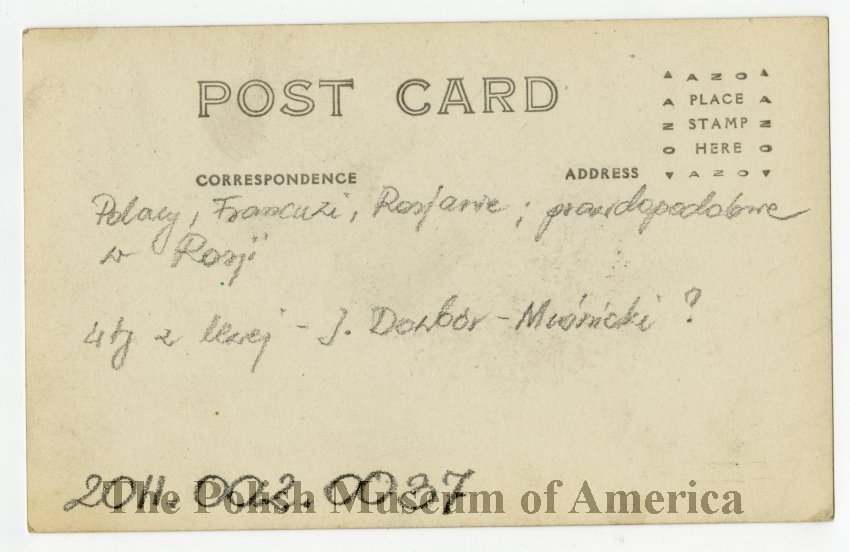 POST CARD
AZO
A PLACE A
Z STAMP Z
O HERE O
AZO
CORRESPONDENCE
ADDRESS
Polacy, Francuzi, Rosjanie; prawdopodobnie
w Rosji
4ty z lewej - J. Dowbór-Muśnicki?
2011.002.0037
The Polish Museum of America